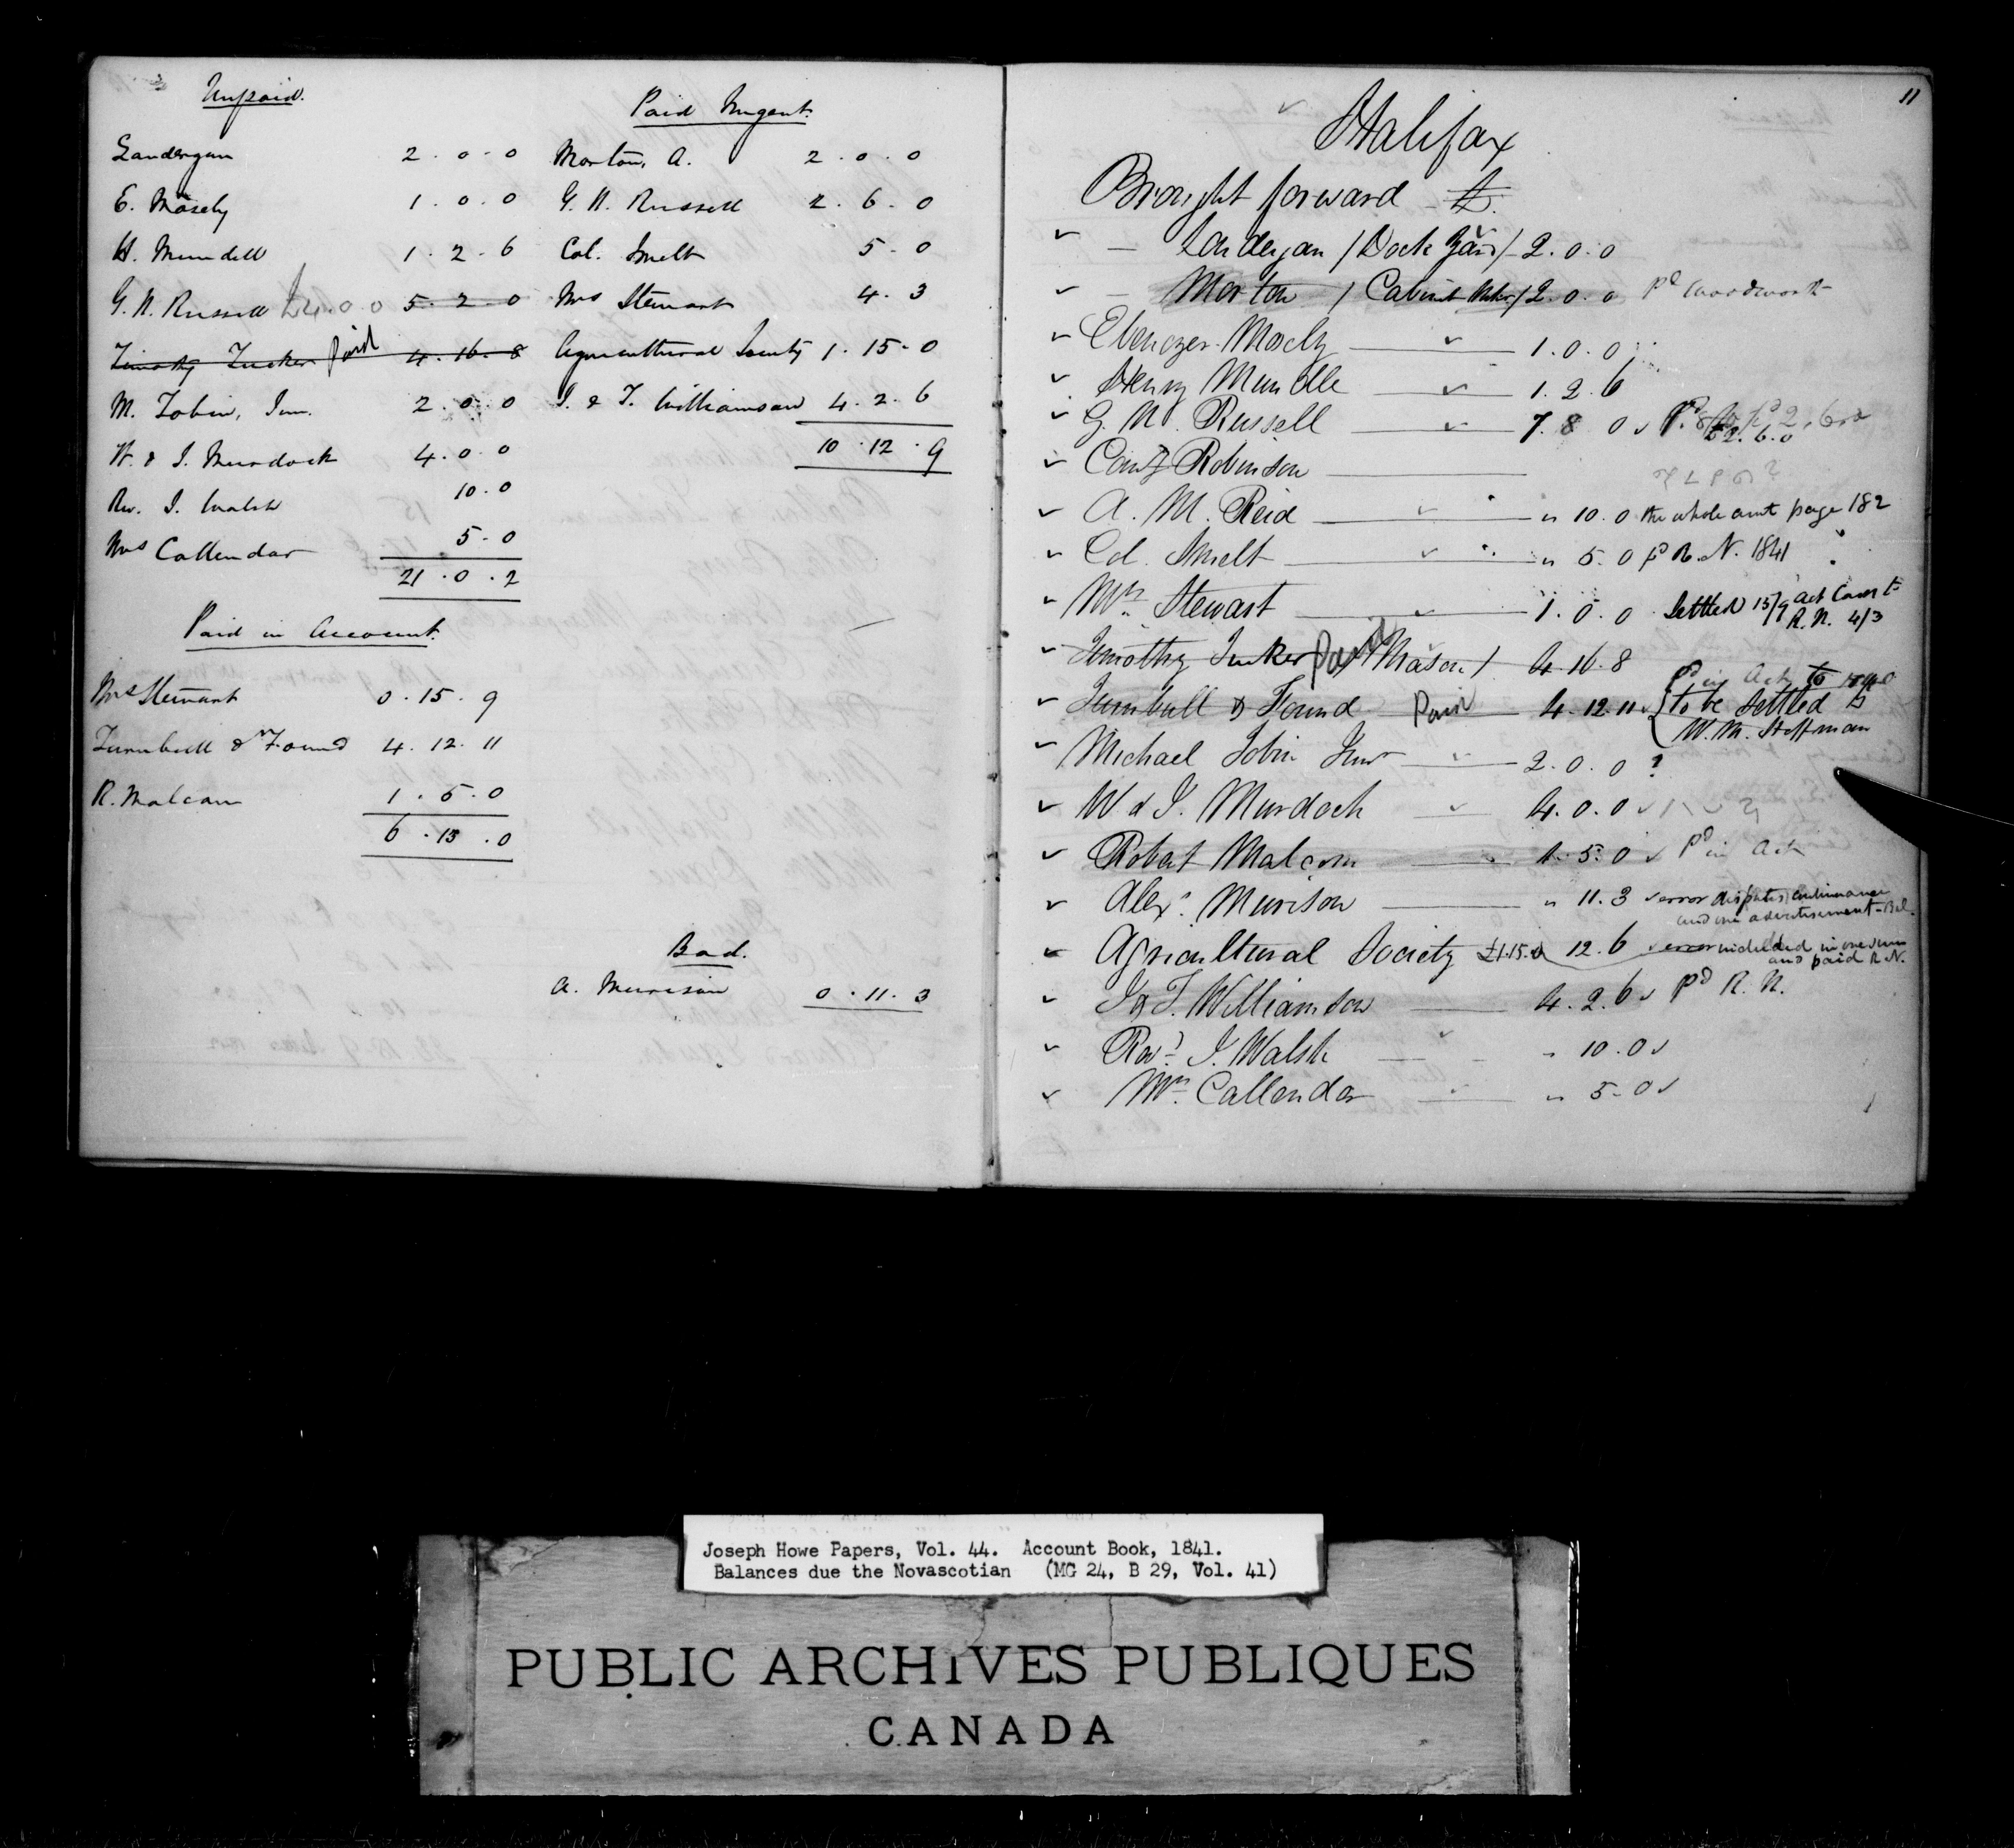 Unpaid.
Landergan 2. 0. 0
E. Mosely 1. 0. 0
H. Mundell 1. 2. 6
G. N. Russell £4. 0. 0 5. 2. 0
Timothy Tucker paid 4. 16. 8
M. Tobin, Jun. 2. 0. 0
W. & J. Murdoch 4. 0. 0
Rev. J. Walsh 10. 0
Mrs Callendar 5. 0
21. 0. 2
Paid in Account.
Mrs Stewart 0. 15. 9
Turnbull & Found 4. 12. 11
R. Malcom 1. 5. 0
6. 13. 0
Paid Nugent.
Morton, A. 2. 0. 0
G. N. Russell 2. 6. 0
Col. Smelt 5. 0
Mrs Stewart 4. 3
Agricultural Society 1. 15. 0
J. & T. Williamson 4. 2. 6
10. 12. 9
Bad.
A. Murison 0. 11. 3
11
Halifax
Brought forward £
— Landergan / Dock Yard / 2. 0. 0
— Morton / Cabinet Mkr / 2. 0. 0 Pd Woodworth
Ebenezer Mosely 1. 0. 0
Henry Mundle 1. 2. 6
G. N. Russell 7. 8. 0 £2. 6. 0
Robinson
A. M. Reid " 10. 0 the whole amt page 182
Col. Smelt " 5. 0 pd R. N. 1841
Mrs. Stewart 1. 0. 0 Settled 15/9 act Cont
R. N. 4/3
Timothy Tucker Paid / Mason / 4. 16. 8
Pd in Act to 1840
Turnbull & Found Paid 4. 12. 11 { to be settled by
W. M. Hoffman
Michael Tobin Junr 2. 0. 0 ?
W & J. Murdoch 4. 0. 0
Robert Malcom 1. 5. 0 Pd in Act
Alexr. Murison " 11. 3 error disputes continuance
and one advertisement - Bal.
Agricultural Society £1.15.0 12. 6 error included in one sum
and paid R. N.
J & T. Williamson 4. 2. 6 Pd R. N.
Revd. J. Walsh " 10. 0
Mrs. Callendar " 5. 0
Joseph Howe Papers, Vol. 44. Account Book, 1841.
Balances due the Novascotian (MG 24, B 29, Vol. 41)
PUBLIC ARCHIVES PUBLIQUES
CANADA